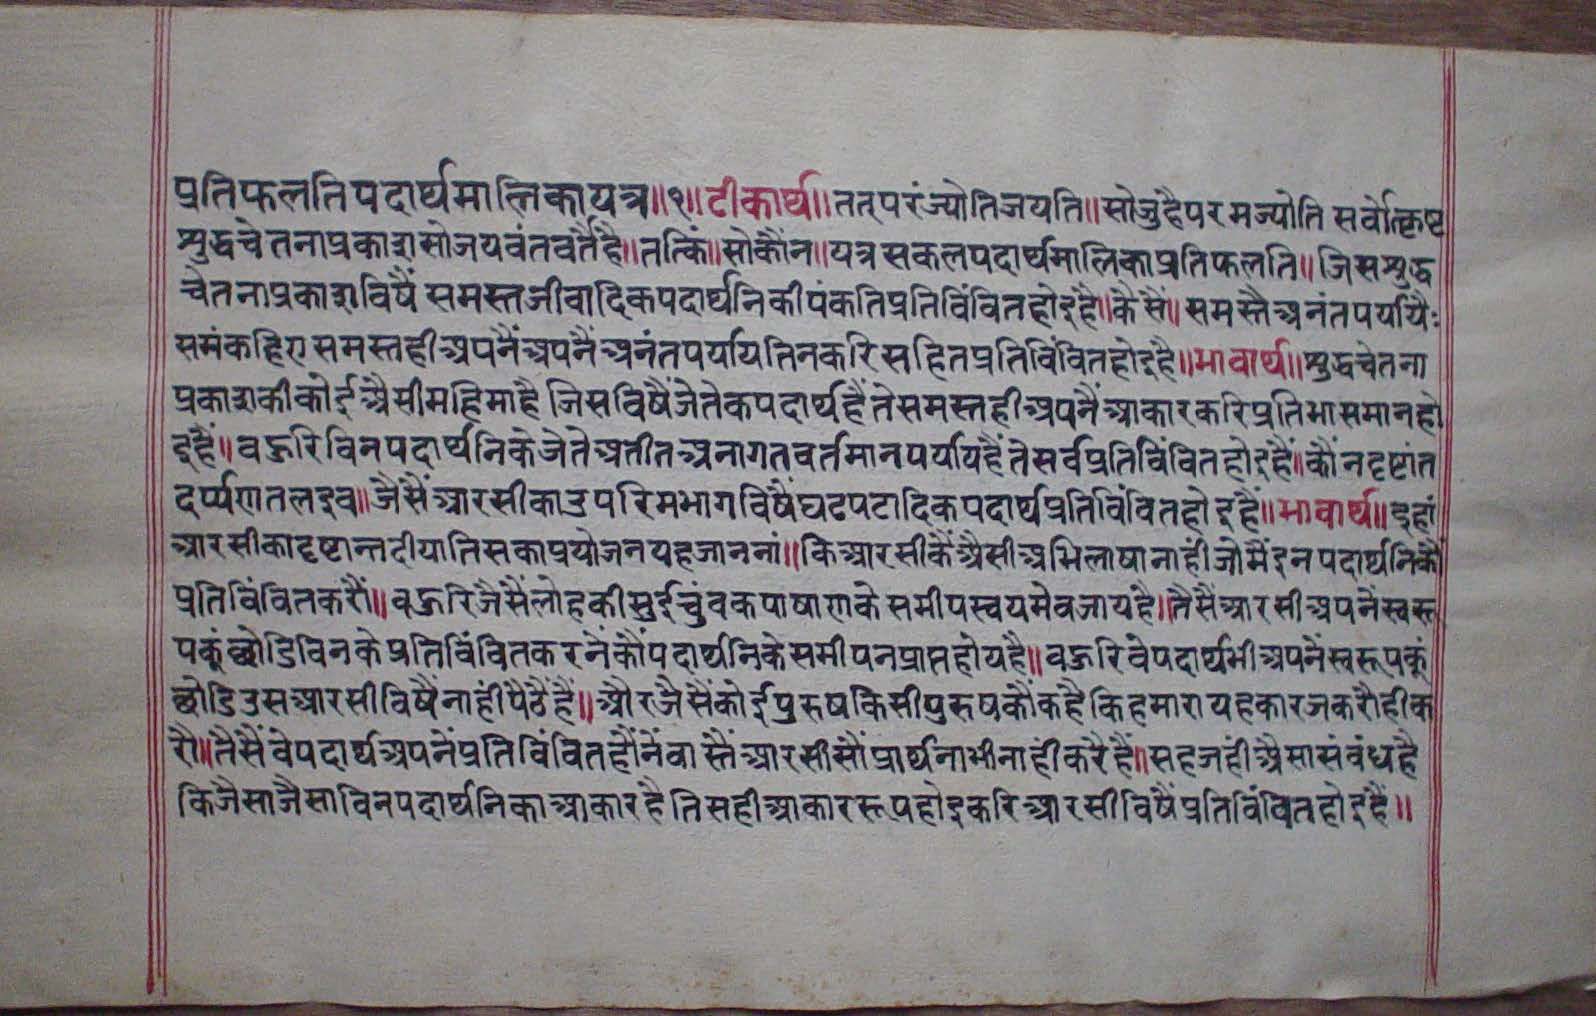 प्रतिफलतिपदार्थमालिकायत्र॥१॥टीकार्थ॥तत्परंज्योतिजयति॥सोजुहैपरमज्योति सर्वोत्कृष्ट
शुद्धचेतनाप्रकाशसोजयवंतवर्तैहै॥तत्किं॥सोकौंन॥यत्र सकलपदार्थमालिकाप्रतिफलति॥जिसशुद्ध
चेतनाप्रकाशविषैं समस्तजीवादिकपदार्थनिकीपंकतिप्रतिविंवितहोइहै॥कैसैं॥समस्तैअनंतपर्यायैः
समंकहिए समस्तहीअपनैंअपनैंअनंतपर्यायतिनकरिसहितप्रतिविंवितहोइहै॥भावार्थ॥शुद्धचेतना
प्रकाशकीकोईअैसीमहिमाहै जिसविषैंजेतेकपदार्थहैं तेसमस्तहीअपनैंआकारकरिप्रतिभासमानहो
इहैं॥वहुरिविनपदार्थनिकेजेतेअतीतअनागतवर्तमानपर्यायहैं तेसर्वप्रतिविंवितहोइहैं॥कौंनदृष्टांत
दर्प्पणतलइव॥जैसैंआरसीकाउपरिमभागविषैंघटपटादिकपदार्थप्रतिविंवितहोइहैं॥भावार्थ॥इहां
आरसीकादृष्टान्तदीयातिसकाप्रयोजनयहजाननां॥किआरसीकैंअैसीअभिलाषानाहींजोमैंइनपदार्थनिकौं
प्रतिविंवितकरौं॥वहुरिजैसैंलोहकीसुईचुंवकपाषाणके समीपस्वयमेवजायहै॥तैसैंआरसीअपनेंस्वरू
पकूंछोडिविनके प्रतिविंवितकरनेंकौंपदार्थनिकेसमीपनप्राप्तहोयहै॥वहुरि वेपदार्थभीअपनैंस्वरूपकूं
छोडिउसआरसीविषैंनाहींपैठैंहैं॥औरजैसैंकोईपुरुषकिसीपुरुषकौंकहैकिहमारा यहकारजकरौहीक
रौ॥तैसैंवेपदार्थअपनेंप्रतिविंवितहौंनेंवास्तैंआरसीसौंप्रार्थनाभीनाहींकरैहैं॥सहजहींअैसासंवंधहै
किजैसाजैसाविनपदार्थनिकाआकारहैतिसहीआकाररूपहोइकरिआरसीविषैंप्रतिविंवितहोइहैं॥